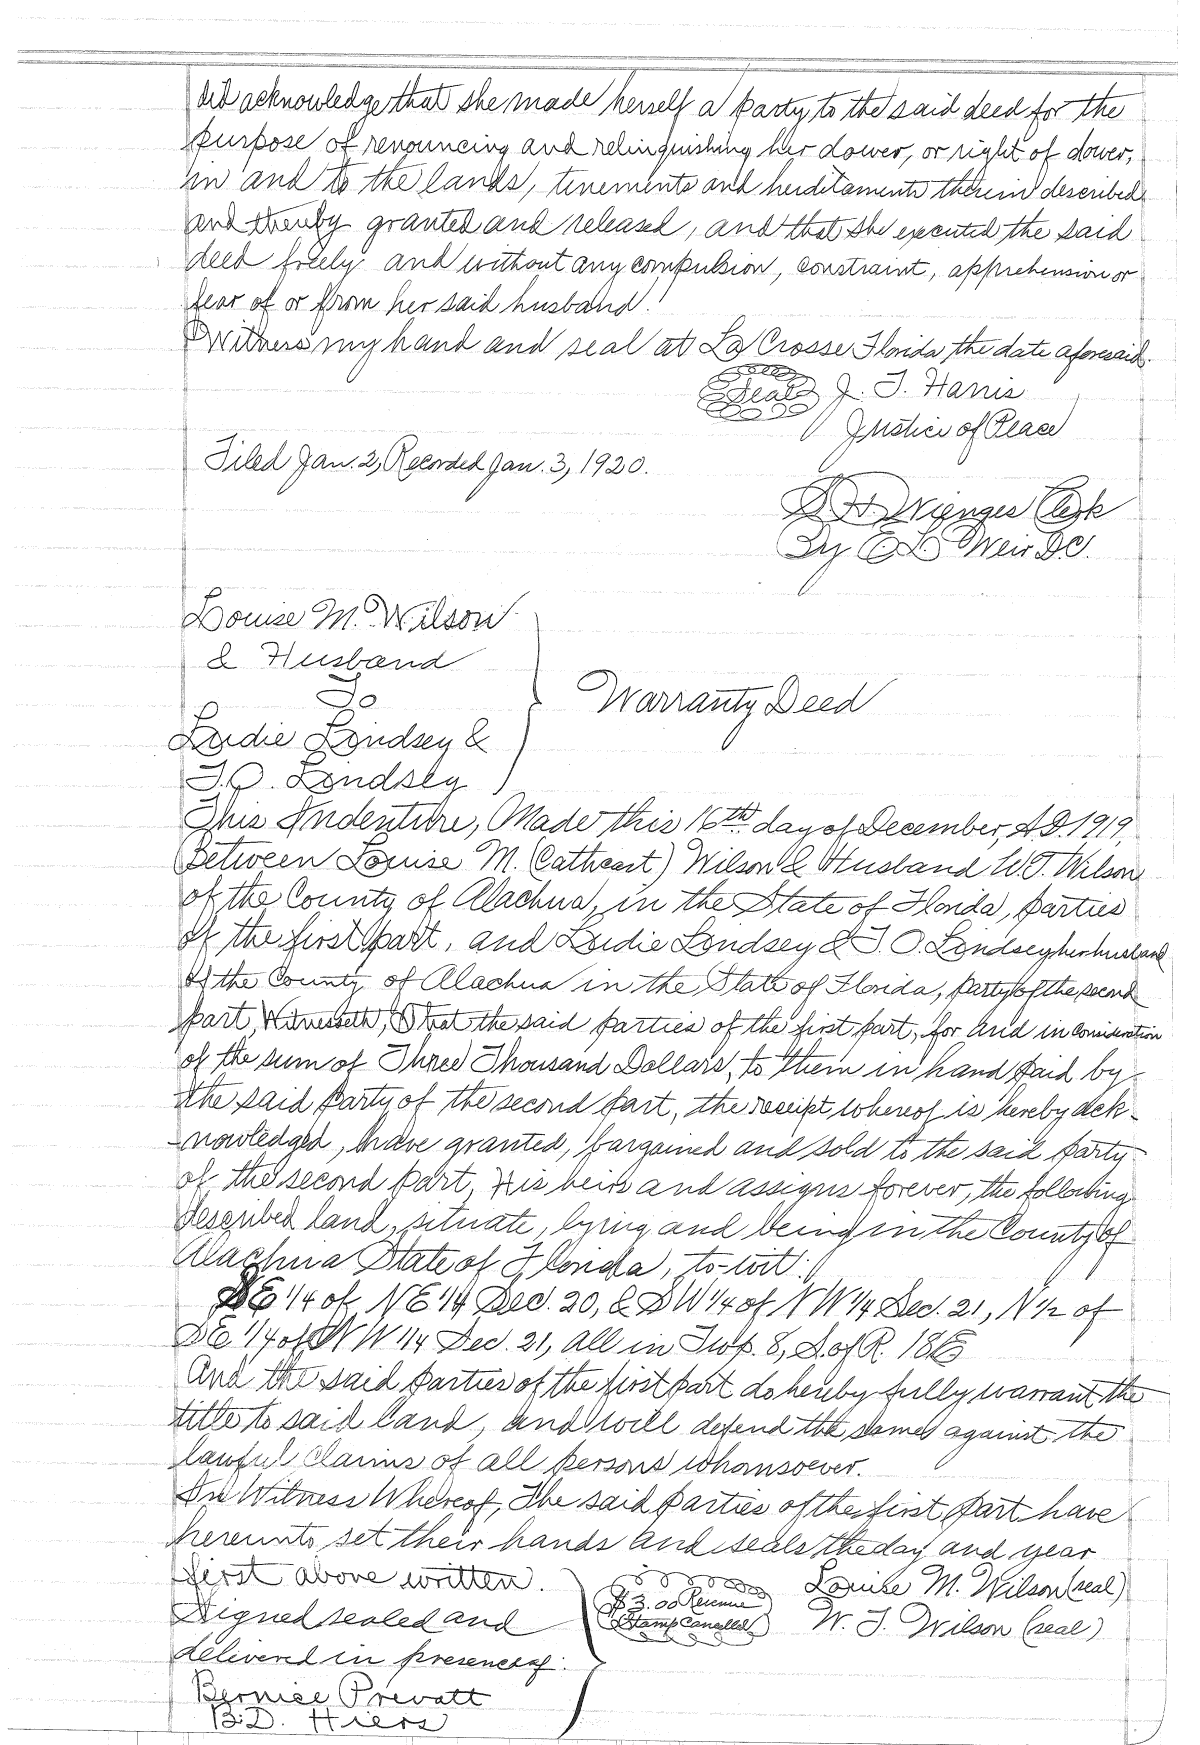 did acknowledge that she made herself a party to the said deed for the
purpose of renouncing and relinquishing her dower, or right of dower,
in and to the lands, tenements and herditaments therein described
and thereby granted and released, and that she executed the said
deed freely and without any compulsion, constraint, apprehension or
fear of or from her said husband.
Witness my hand and seal at La Crosse Florida the date aforesaid.
Seal J. T. Harris
Justice of Peace
Filed Jan. 2, Recorded Jan. 3, 1920.
Wienges Clerk
By E L Weir D.C.
Louise M. Wilson
& Husband
To
Ludie Lindsey &
T. O. Lindsey
Warranty Deed
This Indenture, Made this 16th day of December, A.D. 1919,
Between Louise M. (Cathcart) Wilson & Husband W. T. Wilson
of the County of Alachua, in the State of Florida, parties
of the first part, and Ludie Lindsey & T. O. Lindsey her husband
of the County of Alachua in the State of Florida, party of the second
part, Witnesseth, That the said parties of the first part, for and in consideration
of the sum of Three Thousand Dollars, to them in hand paid by
the said party of the second part, the receipt whereof is hereby ack-
-nowledged, have granted, bargained and sold to the said party
of the second part, His heirs and assigns forever, the following
described land, situate, lying and being in the County of
Alachua State of Florida, to-wit:
SE 1/4 of NE 1/4 Sec. 20, & SW 1/4 of NW 1/4 Sec. 21, N 1/2 of
SE 1/4 of NW 1/4 Sec. 21, all in Twp. 8, S. of R. 18 E
And the said parties of the first part do hereby fully warrant the
title to said land, and will defend the same against the
lawful claims of all persons whomsoever.
In Witness Whereof, The said parties of the first part have
hereunto set their hands and seals the day and year
first above written.
Signed sealed and
delivered in presence of:
Bernice Prevatt
B. D. Hiers
$3.00 Revenue
Stamp Cancelled
Louise M. Wilson (seal)
W. T. Wilson (seal)